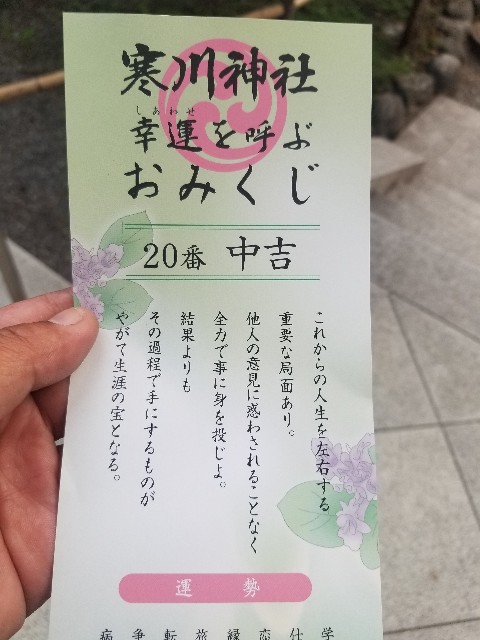 寒川神社
しあわせ
幸運を呼ぶ
おみくじ
20番 中吉
これからの人生を左右する
重要な局面あり。
他人の意見に惑わされることなく
全力で事に身を投じよ。
結果よりも
その過程で手にするものが
やがて生涯の宝となる。
運勢
学
仕
恋
縁
旅
転
争
病